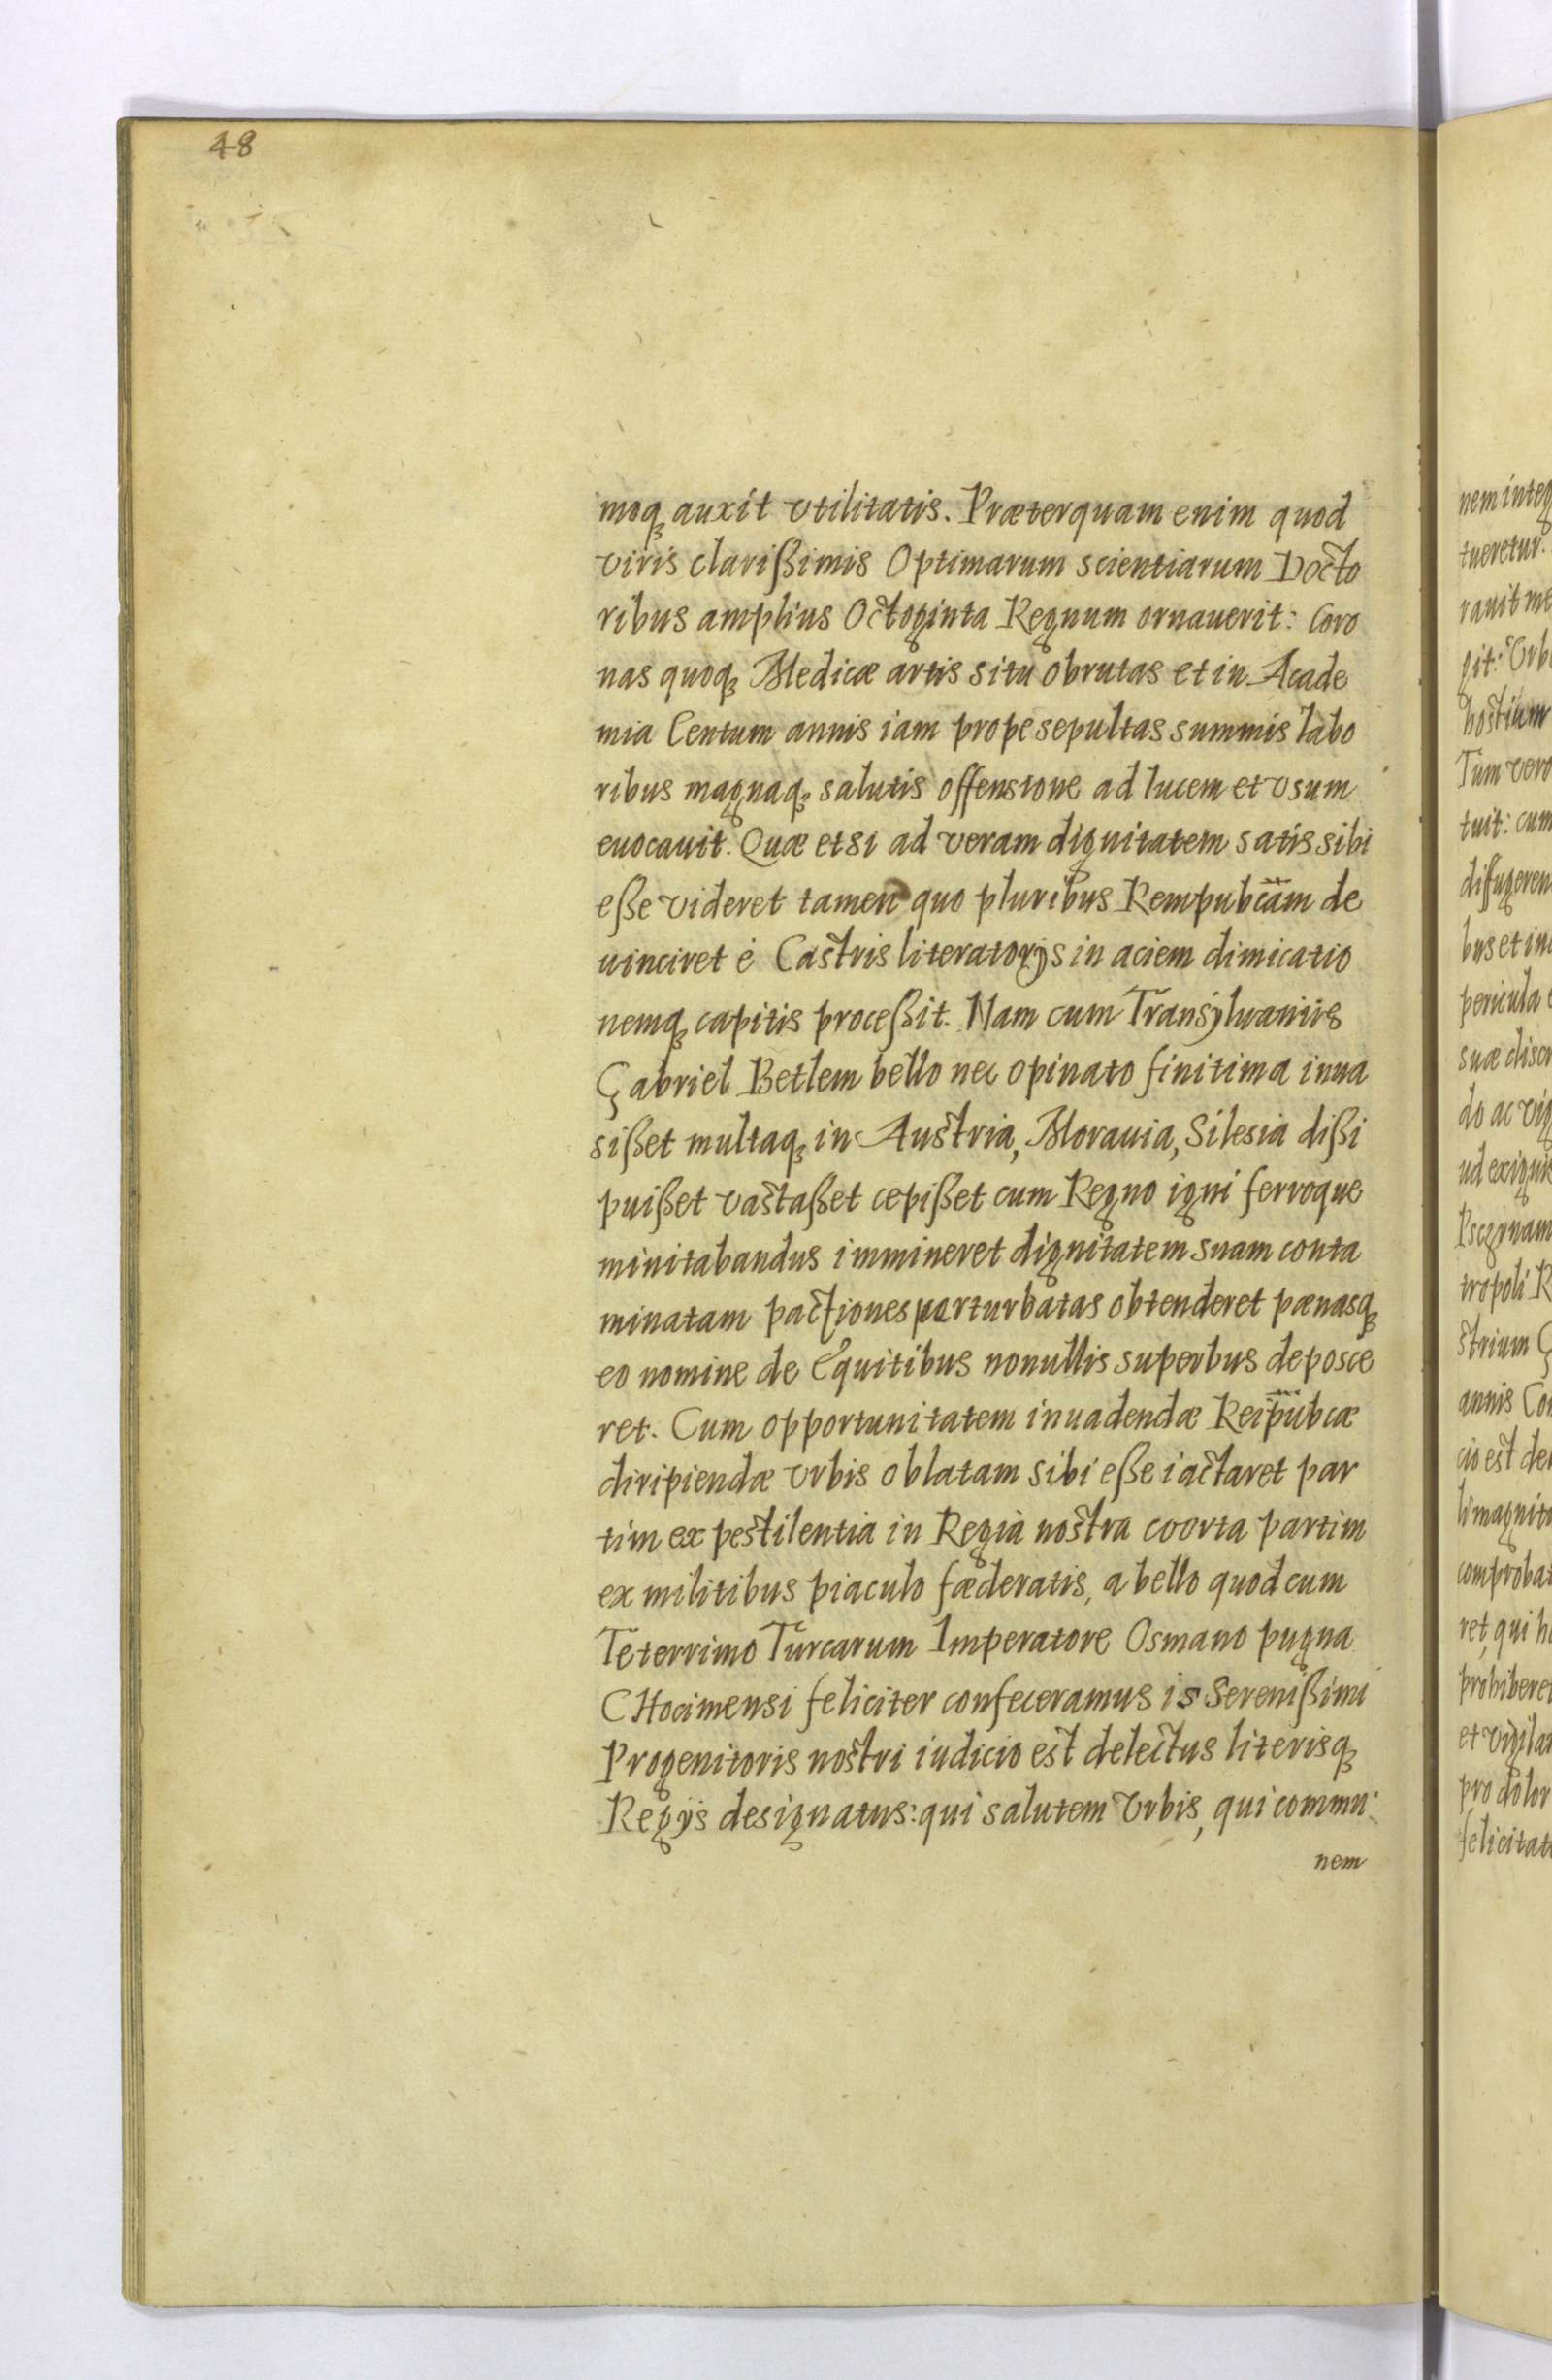 48
moq₃ auxit vtilitatis. Præterquam enim quod
viris clarißimis Optimarum scientiarum Docto
ribus amplius Octoginta Regnum ornauerit: Coro
nas quoq₃ Medicæ artis situ obrutas et in Acade
mia Centum annis iam prope sepultas summis labo
ribus magnaq₃ salutis offensione ad lucem et vsum
euocauit. Quæ etsi ad veram dignitatem satis sibi
eße videret tamen quo pluribus Rempubcam̃ de
uinciret é Castris literatorijs in aciem dimicatio
nemq₃ capitis proceßit. Nam cum Transylvaniis
Gabriel Betlem bello nec opinato finitima inua
sißet multaq₃ in Austria, Morauia, Silesia dißi
puißet vastaßet cepißet cum Regno igni ferroque
minitabandus immineret dignitatem suam conta
minatam pactiones parturbatas obtenderet pænasq₃
eo nomine de Equitibus nonullis superbus deposce
ret. Cum opportunitatem inuadendæ Reip̃ubcæ
diripiendæ vrbis oblatam sibi eße iactaret par
tim ex pestilentia in Regia nostra coorta partim
ex militibus piaculo fæderatis, a bello quod cum
Teterrimo Turcarum Imperatore Osmano pugna
CHocimensi feliciter confeceramus is Serenißimi
Progenitoris nostri iudicio est delectus literisq₃
Regijs designatus: qui salutem Vrbis, qui commu
nem
nem integ
tueretur.
rauit me
git: Vrb
hostium
Tum vero
tuit: cum
diffugeren
bus et in
pericula
suæ discr
do ac vig
ud exiguis
tropoli R
strium G
annis Con
cio est de
li magnit
comprobat
ret, qui h
prohiberet
et vigila
pro dolor
felicitat